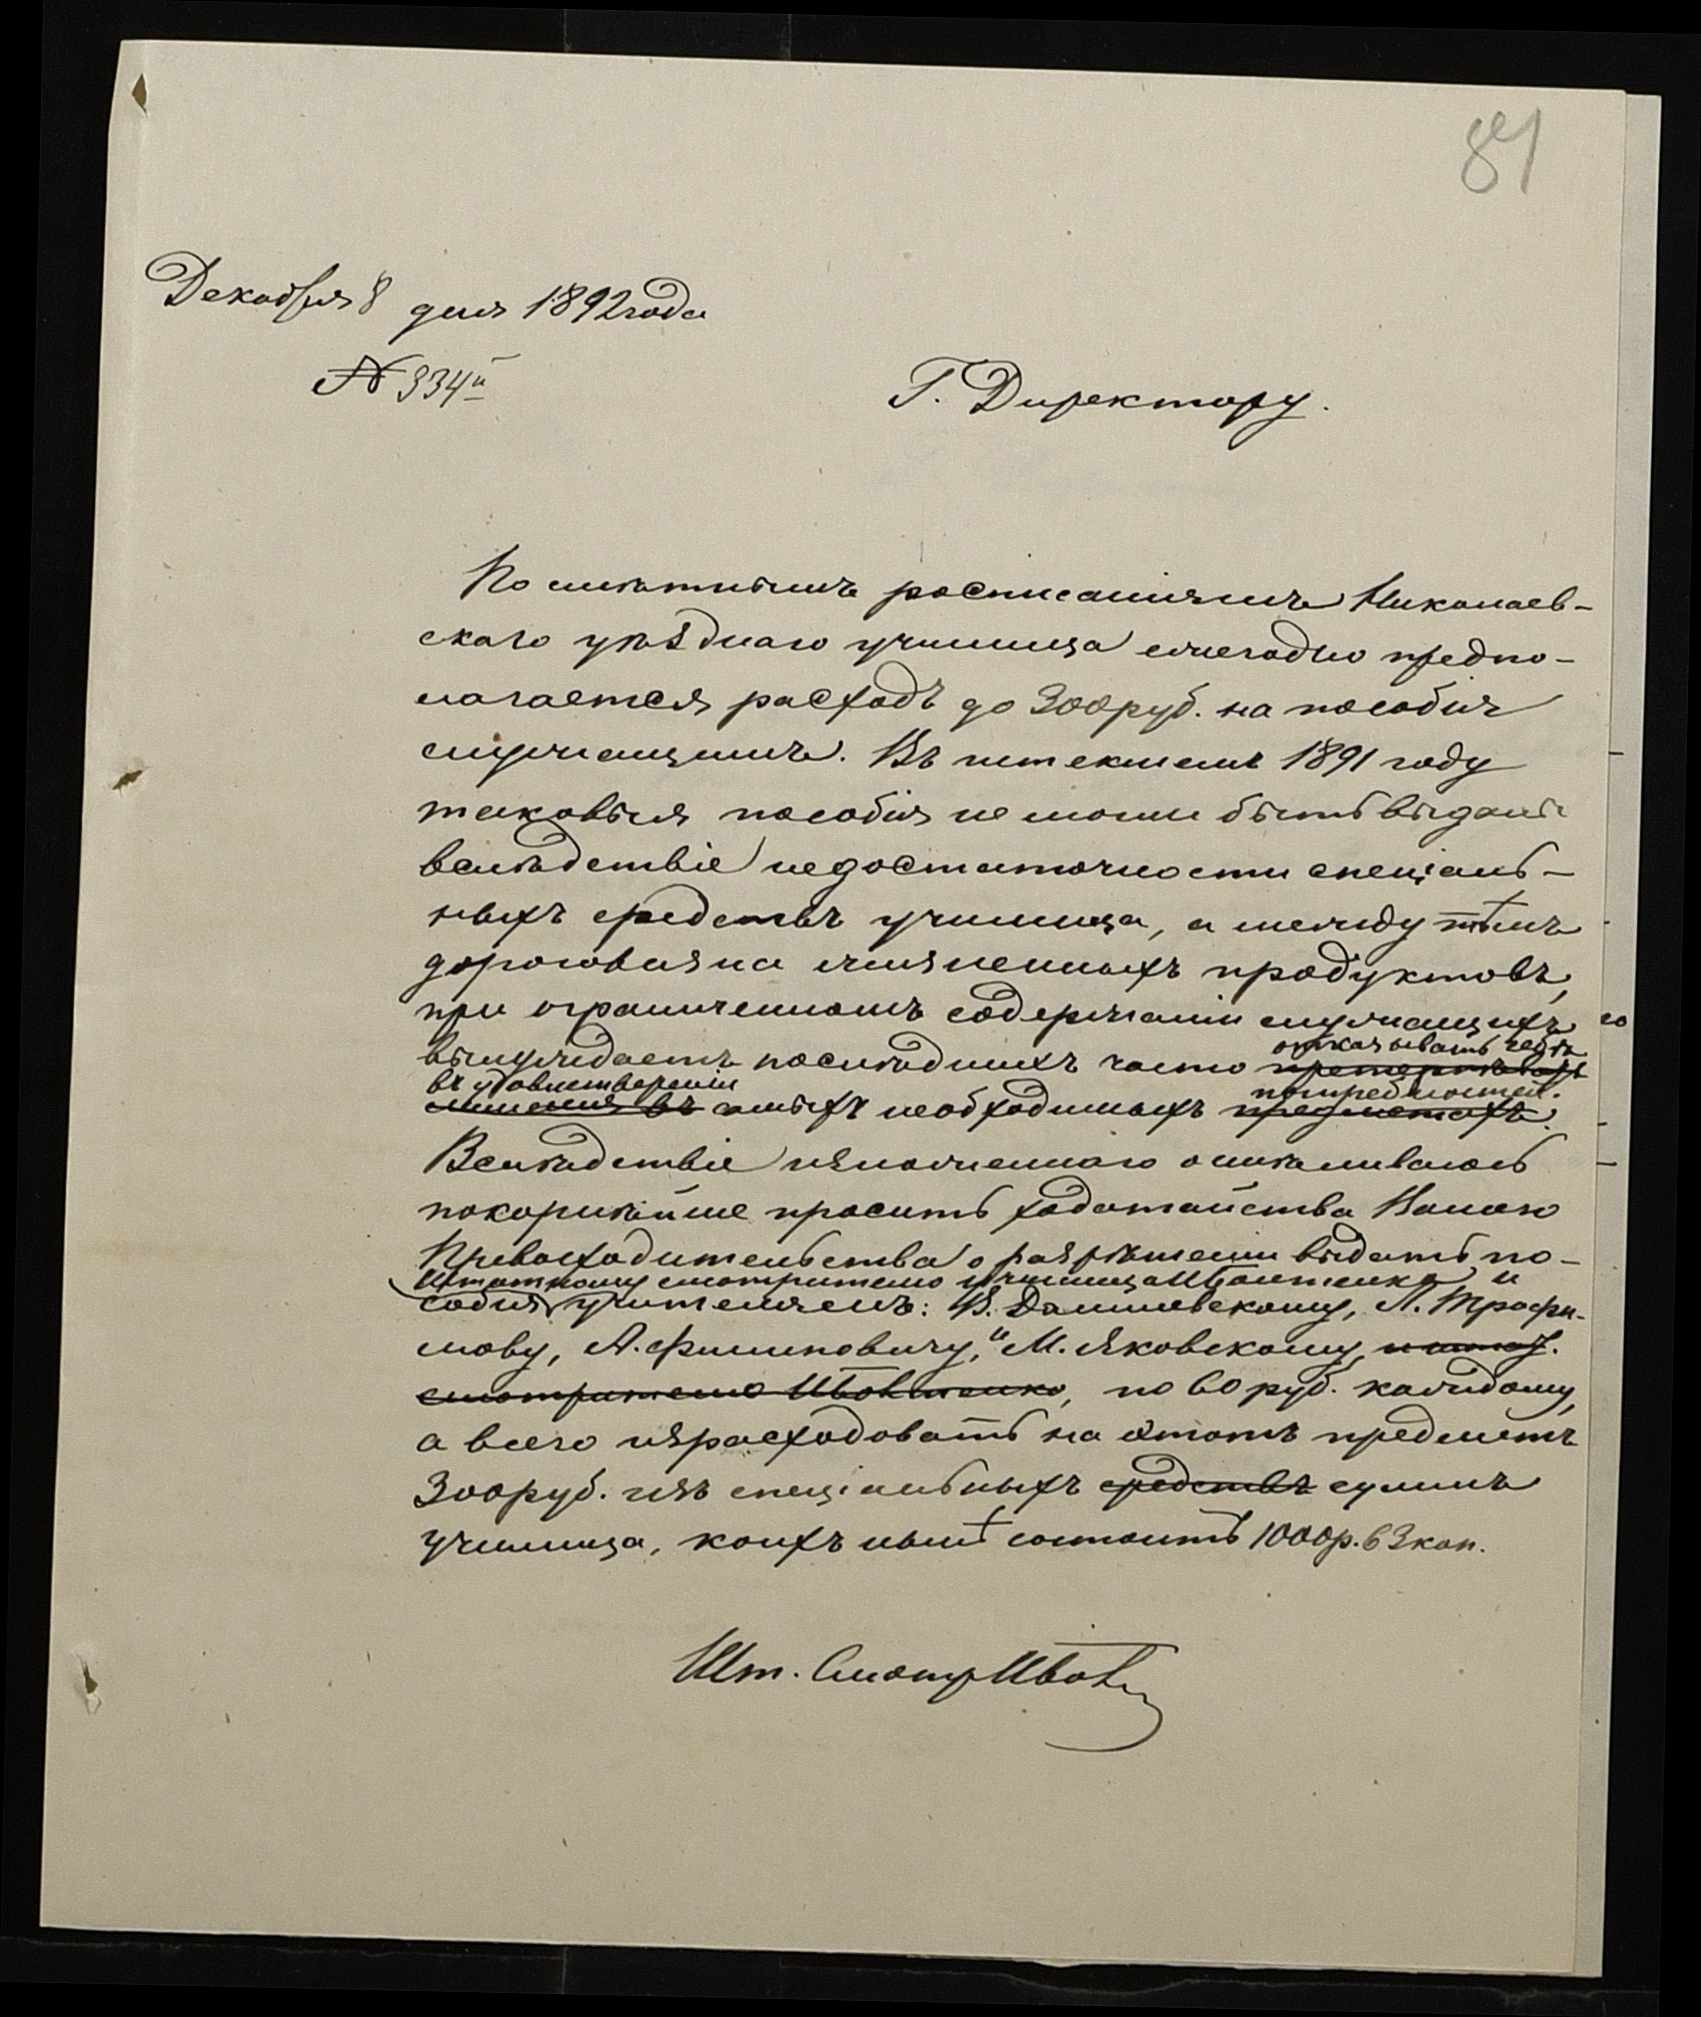 81
Декабря 8 дня 1892 года
№ 334й
Г. Директору.
По смѣтнымъ росписаніямъ Николаев-
скаго уѣзднаго училища ежегодно предпо-
лагается расходъ до 300 руб. на пособія
служащимъ. Въ истекшемъ 1891 году
таковыя пособія не могли быть выданы
вслѣдствіе недостаточности спеціаль-
ныхъ средствъ училища, а между тѣмъ
дороговизна жизненныхъ продуктовъ,
при ограниченномъ содержаніи служащихъ
отказывать себѣ
вынуждаетъ послѣднихъ часто претерпѣвать
въ удовлетвореніи потребностей.
лишенія въ самыхъ необходимыхъ предметахъ.
Вслѣдствіе изложеннаго осмѣливаюсь
покорнѣйше просить ходатайства Вашего
Превосходительства о разрѣшеніи выдать по-
Штатному смотрителю училища Ивантенко и
собія учителямъ: В. Данилевскому, Л. Трофи-
мову, А. Филиповичу, и М. Яковскому, и штат.
смотрителю, по 60 руб. каждому,
а всего израсходовать на этотъ предметъ
300 руб. изъ спеціальныхъ средствъ суммъ
училища, коихъ нынѣ состоитъ 1000 р. 63 коп.
Шт. Смотр